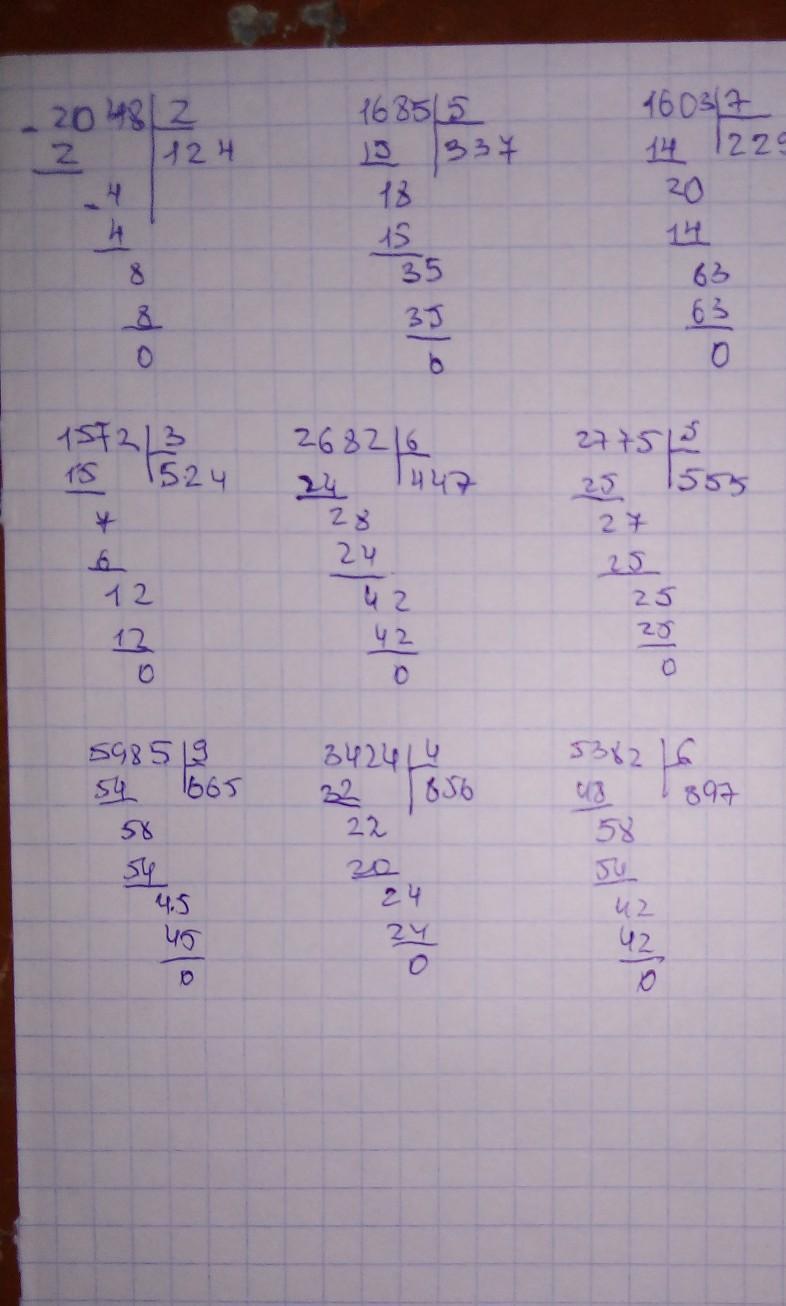 - 2048 | 2    1685 | 5    1603 | 7
2    124    15    337    14    229
- 4    18    20
4    15    14
8    35    63
8    35    63
0    0    0
1572 | 3    2682 | 6    2775 | 5
15    524    24    447    25    555
7    28    27
6    24    25
12    42    25
12    42    25
0    0    0
5985 | 9    3424 | 4    5382 | 6
54    665    32    856    48    897
58    22    58
54    20    54
45    24    42
45    24    42
0    0    0